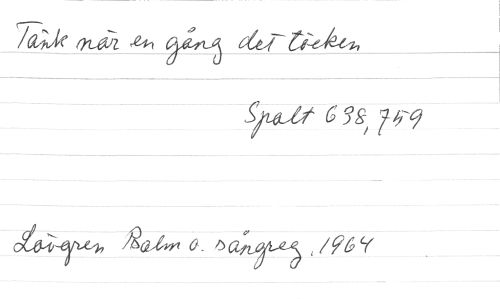 Tänk när en gång det töcken
Spalt 638,759
Lövgren Psalm o. sångreg. 1964